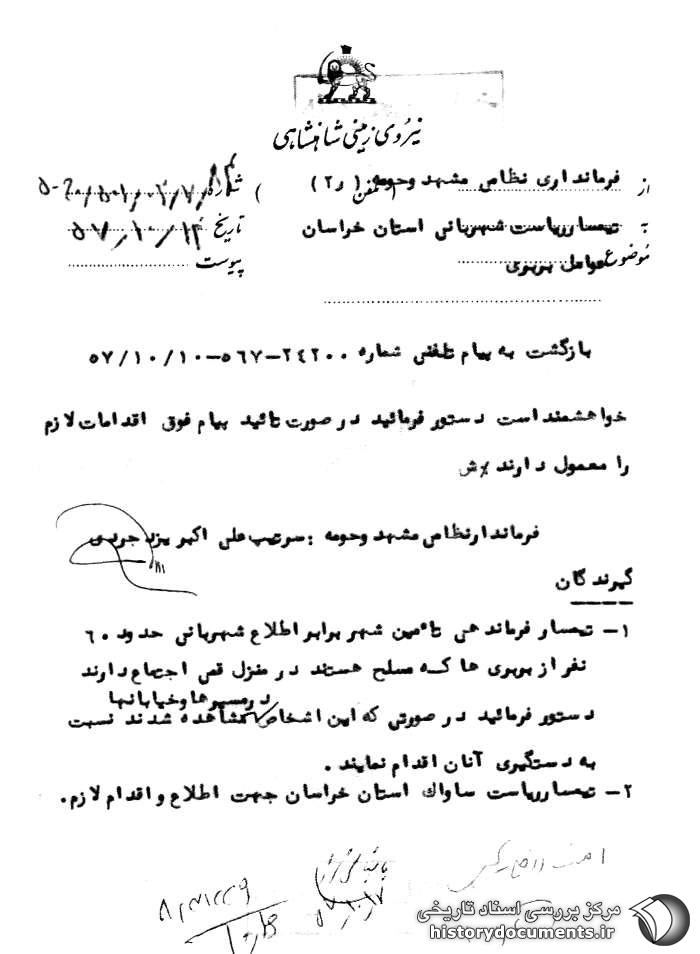 نیروی زمینی شاهنشاهی
از فرمانداری نظامی مشهد وحومه ( ر۲ )
شماره
به تیمسارریاست شهربانی استان خراسان
تاریخ ۵۷/۱۰/۱۴
موضوع عوامل بربری
پیوست
بازگشت به پیام تلفنی شماره ۲٤۲۰۰-۵٦۷-۵۷/۱۰/۱۰
خواهشمند است دستور فرمائید در صورت تائید پیام فوق اقدامات لازم
را معمول دارند
فرماندارنظامی مشهد وحومه : سرتیپ علی اکبر یزدجردی
گیرندگان
۱- تیمسار فرماندهی تامین شهر برابر اطلاع شهربانی حدود ٦۰
نفر از بربری ها که مسلح هستند در منزل قمی اجتماع دارند
درمسیرها وخیابانها
دستور فرمائید در صورتی که این اشخاص مشاهده شدند نسبت
به دستگیری آنان اقدام نمایند .
۲- تیمسارریاست ساواک استان خراسان جهت اطلاع و اقدام لازم.
مرکز بررسی اسناد تاریخی
historydocuments.ir